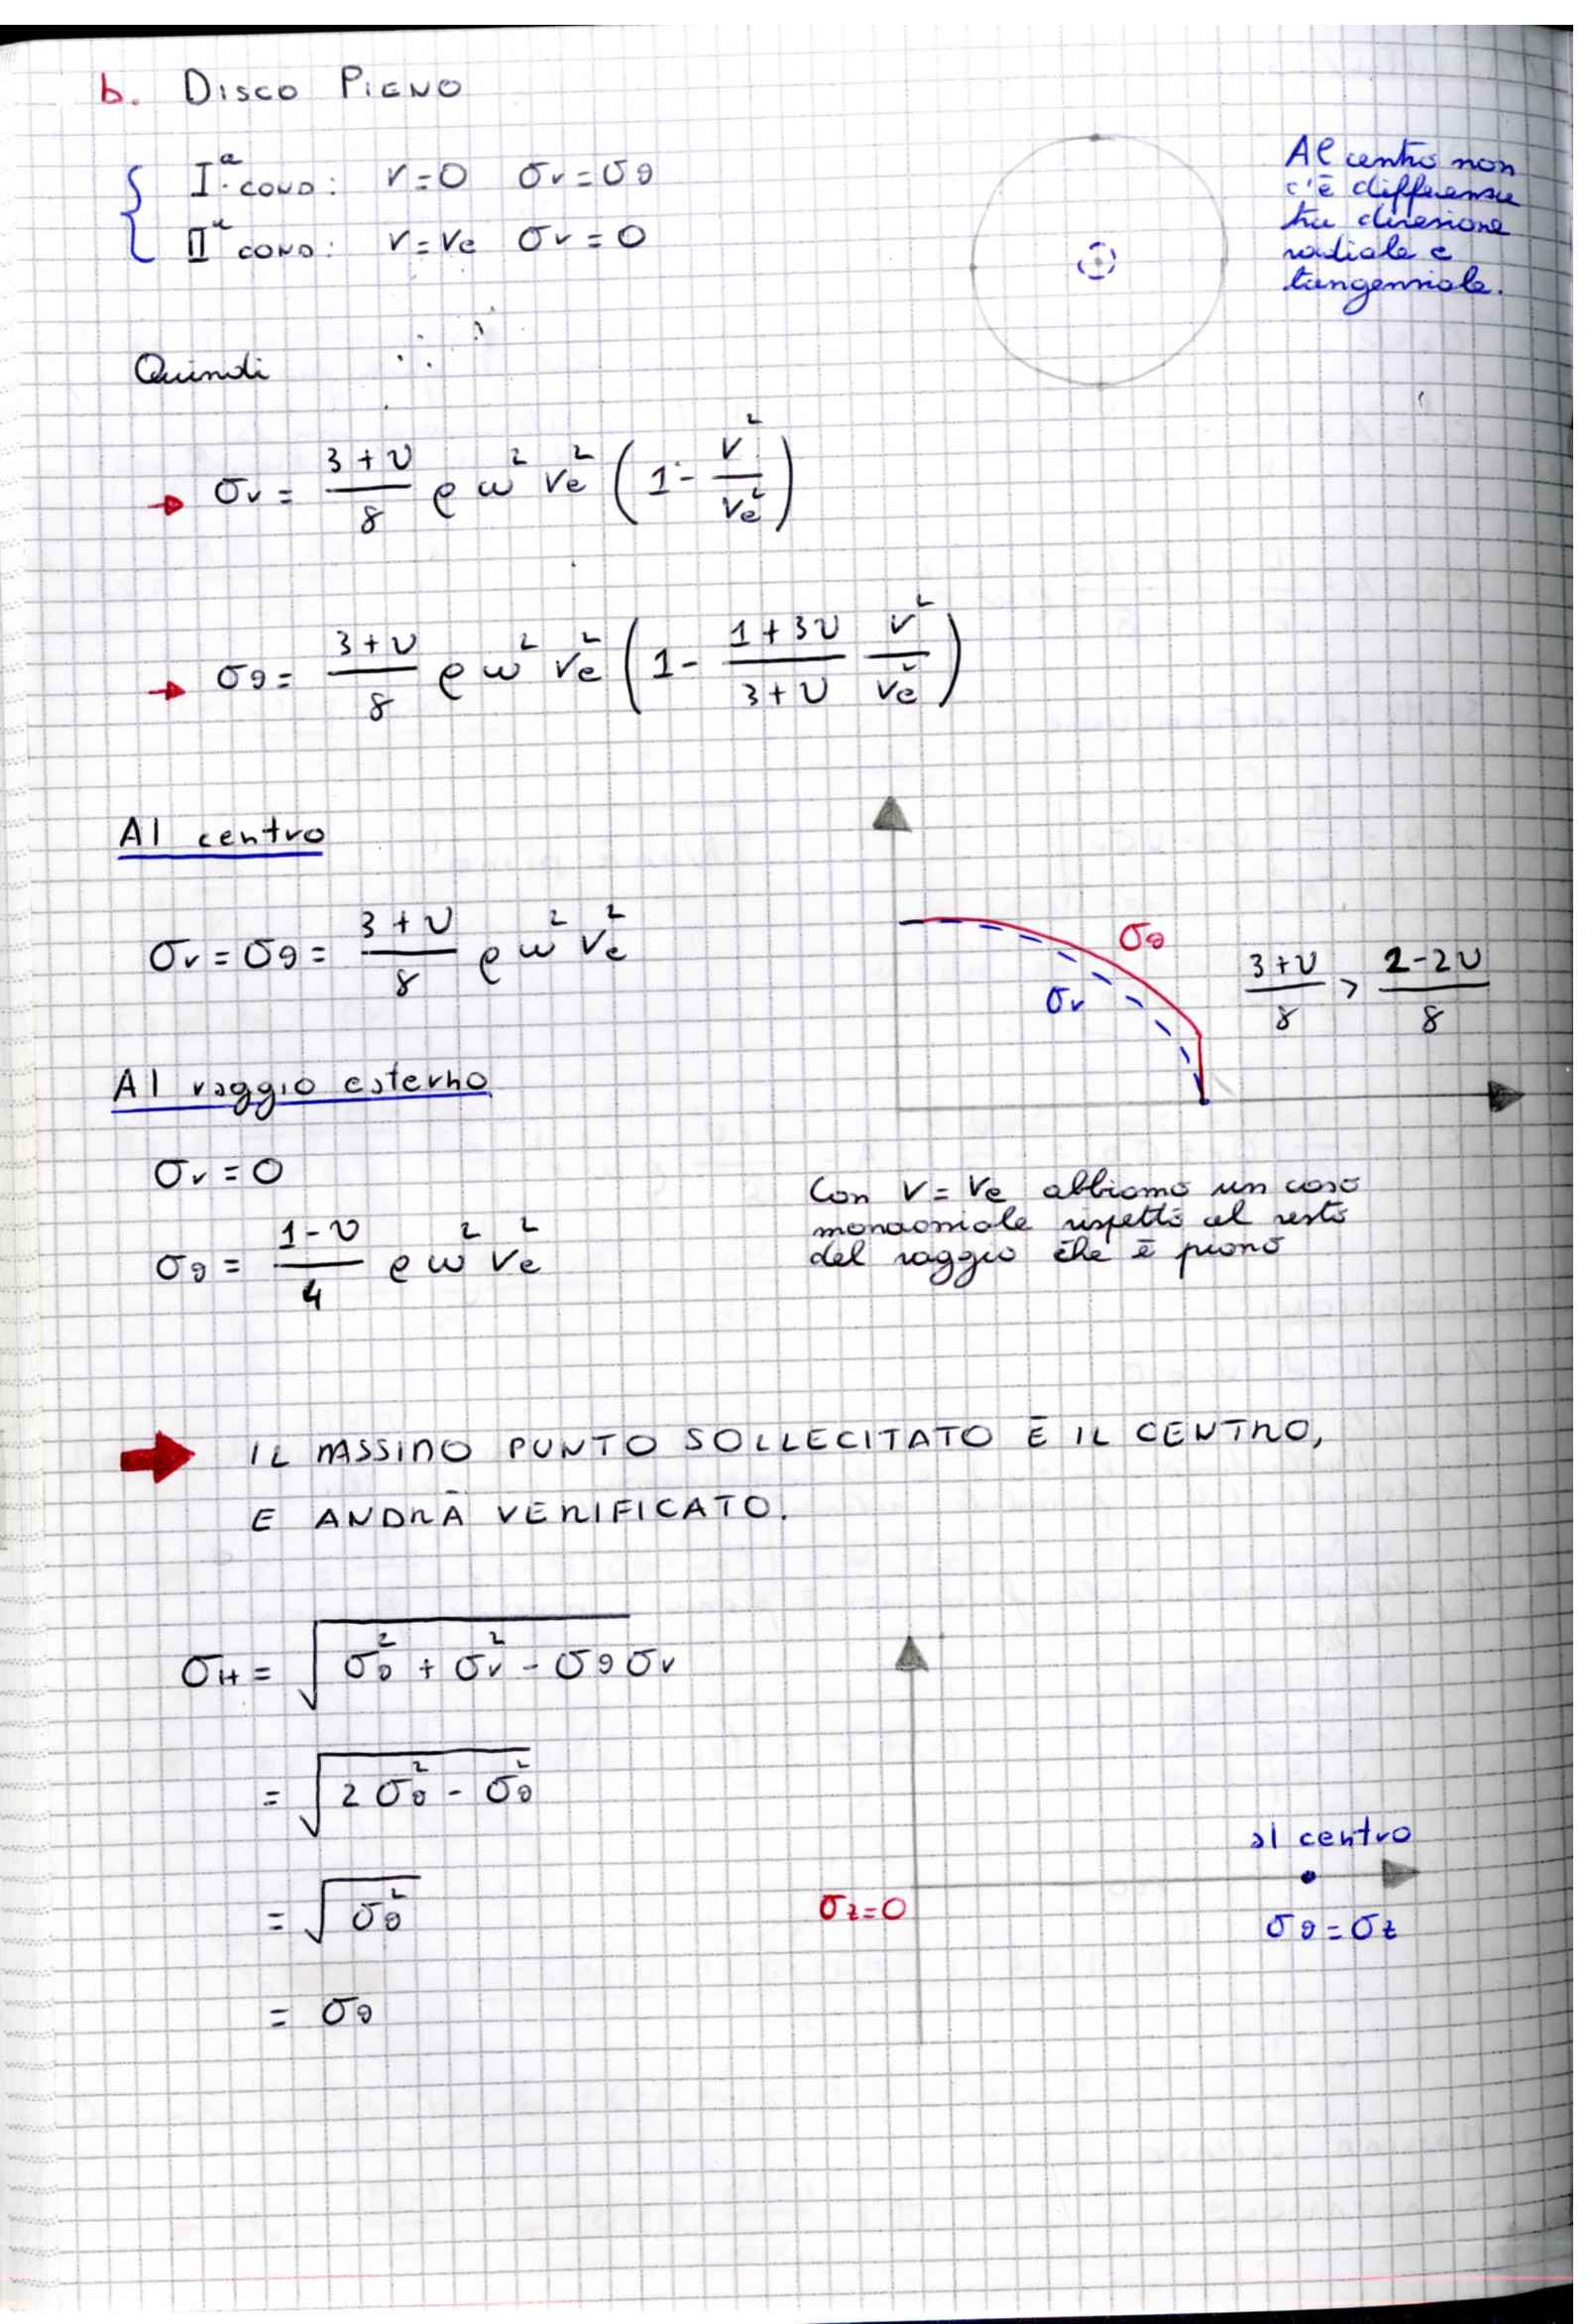 b. DISCO PIENO
Iª COND: r=0 σr=σθ
IIª COND: r=re σr=0
Al centro non
c'è differenza
tra direzione
radiale e
tangenziale.
Quindi
→ σr = (3+ν)/8 ρ ω² re² (1 - r²/re²)
→ σθ = (3+ν)/8 ρ ω² re² (1 - (1+3ν)/(3+ν) r²/re²)
Al centro
σr = σθ = (3+ν)/8 ρ ω² re²
σθ
σr
(3+ν)/8 > (2-2ν)/8
Al raggio esterno
σr = 0
σθ = (1-ν)/4 ρ ω² re²
Con r = re abbiamo un caso
monoassiale rispetto al resto
del raggio che è piano
→ IL MASSIMO PUNTO SOLLECITATO È IL CENTRO,
E ANDRÀ VERIFICATO.
σH = √(σθ² + σr² - σθσr)
= √(2σθ² - σθ²)
= √(σθ²)
= σθ
al centro
σz=0
σθ=σz